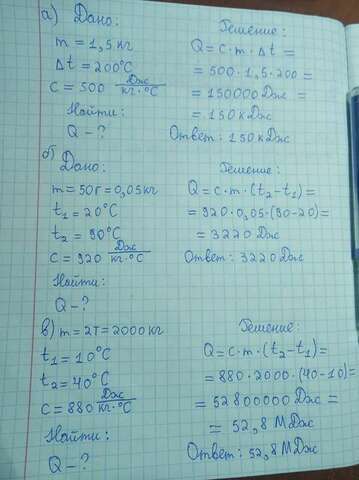 а) Дано:
m = 1,5 кг
Δt = 200°C
c = 500 Дж/кг·°C
Найти:
Q - ?
Решение:
Q = c · m · Δt =
= 500 · 1,5 · 200 =
= 150000 Дж =
= 150 кДж
Ответ: 150 кДж
б) Дано:
m = 50г = 0,05 кг
t₁ = 20°C
t₂ = 90°C
c = 920 Дж/кг·°C
Найти:
Q - ?
Решение:
Q = c · m · (t₂ - t₁) =
= 920 · 0,05 · (90 - 20) =
= 3220 Дж
Ответ: 3220 Дж
в) m = 2т = 2000 кг
t₁ = 10°C
t₂ = 40°C
c = 880 Дж/кг·°C
Найти:
Q - ?
Решение:
Q = c · m · (t₂ - t₁) =
= 880 · 2000 · (40 - 10) =
= 52800000 Дж =
= 52,8 МДж
Ответ: 52,8 МДж